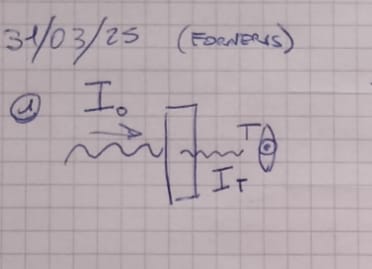 31/03/25 (FORNERIS)
1
I₀
T
I_T